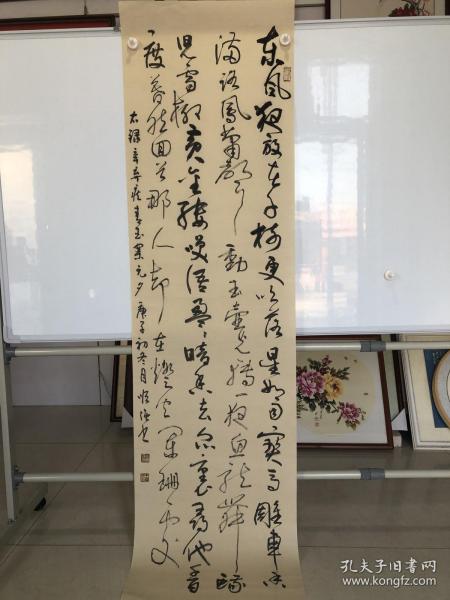 东风夜放花千树更吹落星如雨宝马雕车香
满路凤箫声动玉壶光转一夜鱼龙舞蛾
儿雪柳黄金缕笑语盈盈暗香去众里寻他千百
度蓦然回首那人却在灯火阑珊处
右录辛弃疾青玉案元夕 庚子初冬月
孔夫子旧书网
www.kongfz.com